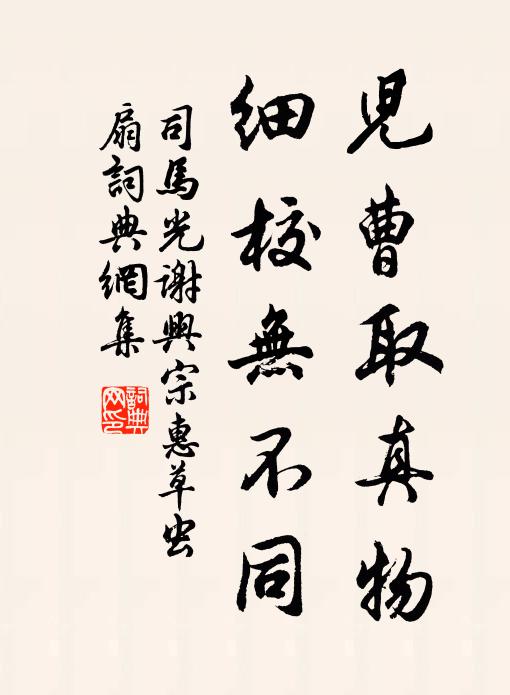 兒曹取真物
細校無不同
司馬光謝興宗惠草虫
扇詞典網集
詞典网印